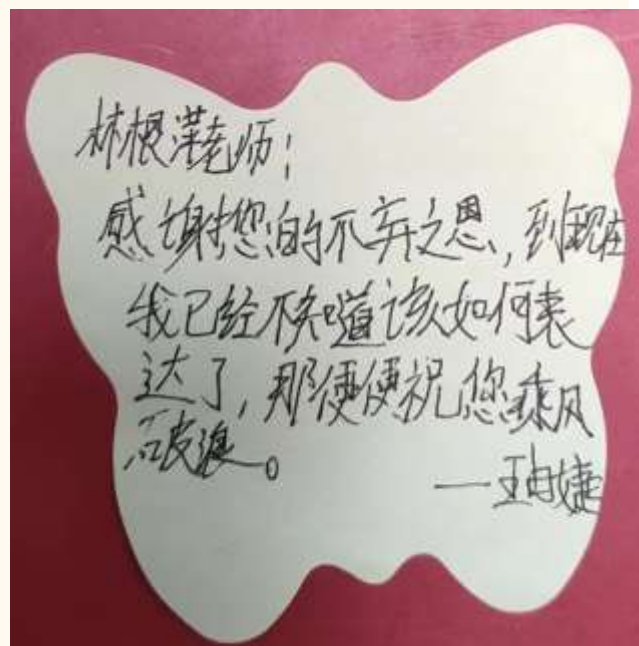 林根滢老师:
感谢您的不弃之恩,到现在
我已经不知道该如何表
达了,那便便祝您乘风
破浪。
——王由婕